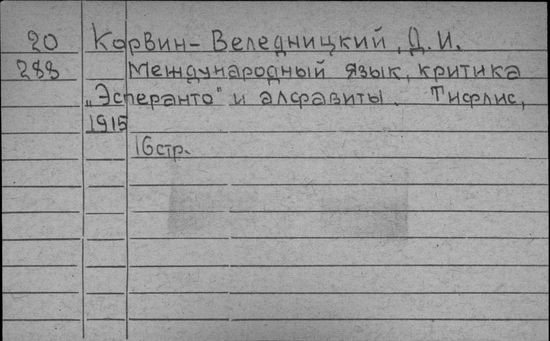 20 Корвин-Веледницкий, Д. И.
288 Международный язык, критика
„Эсперанто" и алфавиты. Тифлис,
1915
16 стр.